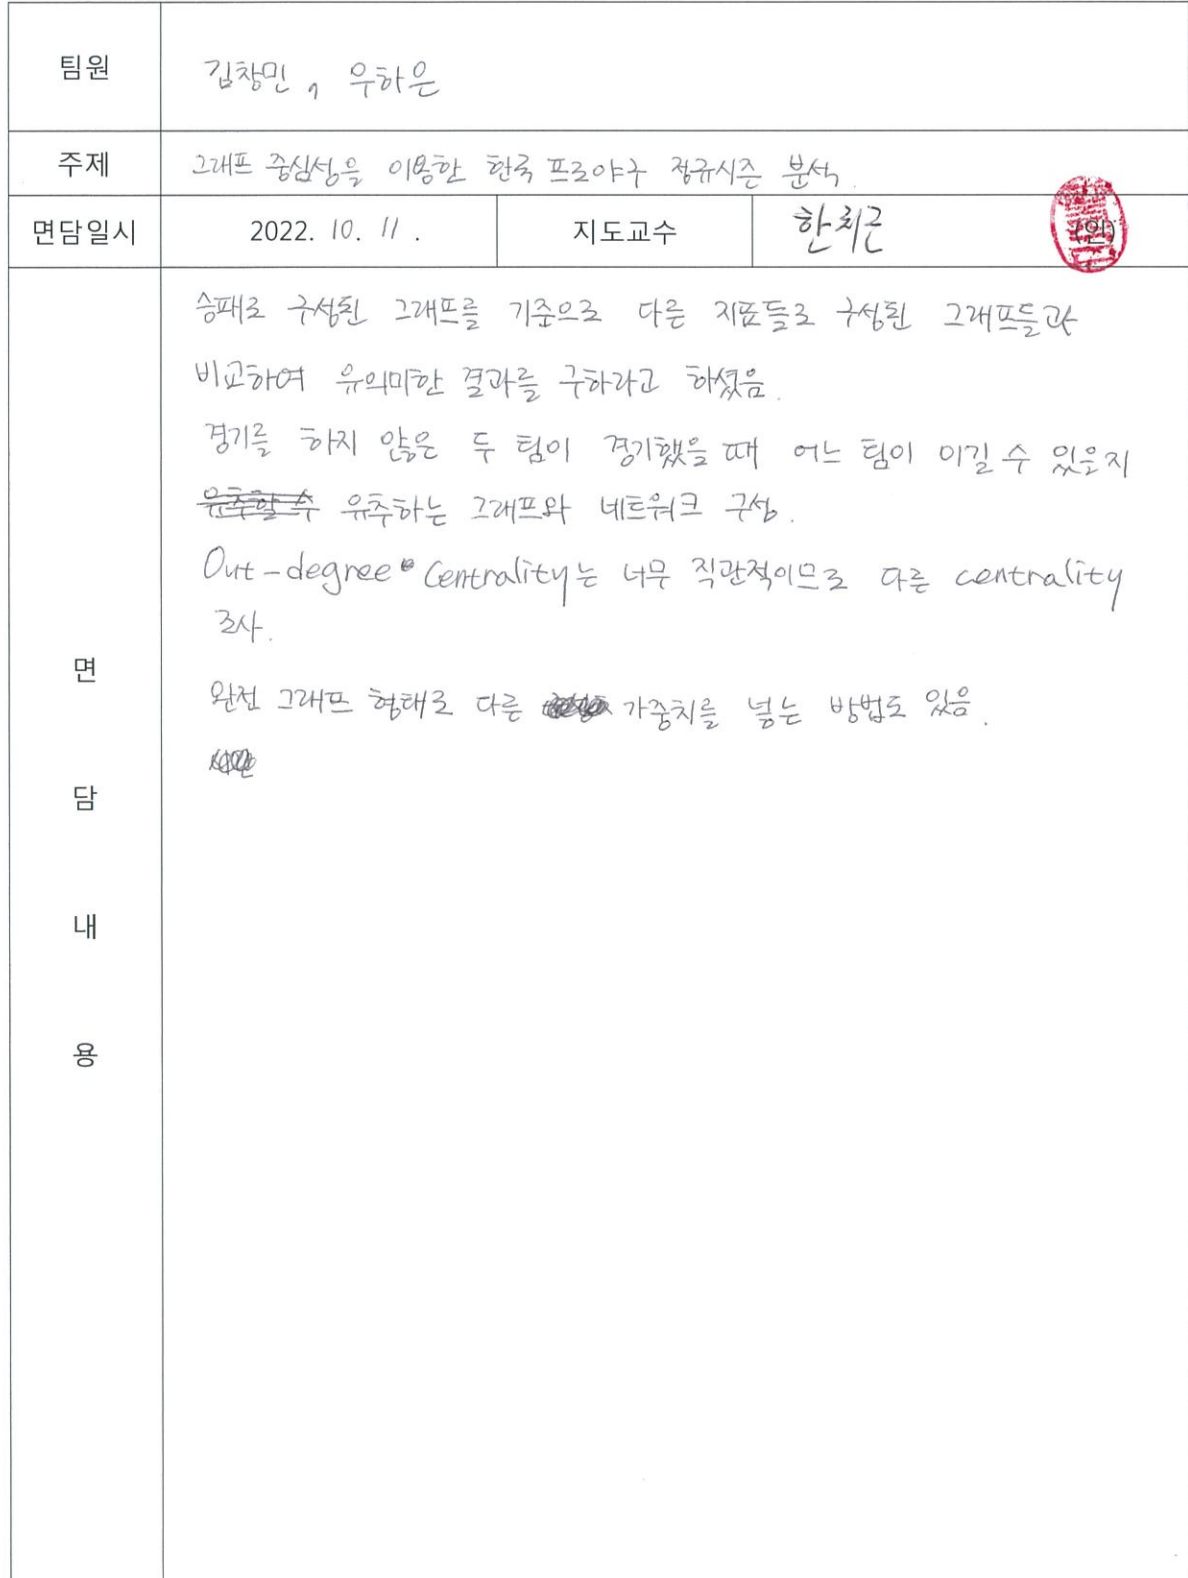 팀원 김창민, 우하은
주제 그래프 중심성을 이용한 한국 프로야구 정규시즌 분석.
면담일시 2022. 10. 11. 지도교수 한치근 (인)
승패로 구성된 그래프를 기준으로 다른 지표들로 구성된 그래프들과
비교하여 유의미한 결과를 구하라고 하셨음.
경기를 하지 않은 두 팀이 경기했을 때 어느 팀이 이길 수 있을지
유추할 수 유추하는 그래프와 네트워크 구성.
Out-degree Centrality는 너무 직관적이므로 다른 centrality
조사.
완전 그래프 형태로 다른 가중치를 넣는 방법도 있음.
면
담
내
용